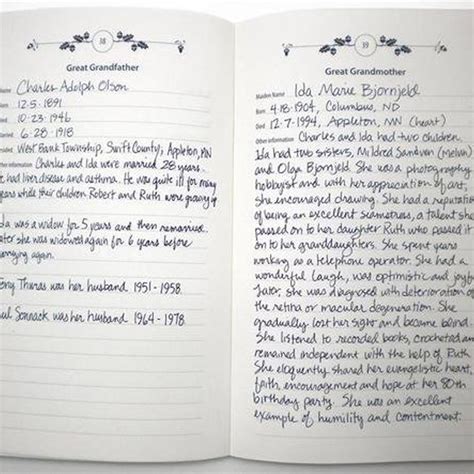 38
Great Grandfather
Name Charles Adolph Olson
Born 12.5.1891
Died 10.23.1946
Married 6.28.1918
Resided West Bank Township, Swift County; Appleton, MN
Other information Charles and Ida were married 28 years.
He had liver disease and asthma. He was quite ill for many
years while their children Robert and Ruth were growing up
Ida was a widow for 5 years and then remarried.
Later she was widowed again for 6 years before
marrying again.
Tony Theras was her husband 1951-1958.
Paul Sonnack was her husband 1964-1978.
39
Great Grandmother
Maiden Name Ida Marie Bjornjeld
Born 4.18.1904, Columbus, ND
Died 12.7.1994, Appleton, MN (heart)
Other information Charles and Ida had two children.
Ida had two sisters, Mildred Sandvan (Melvin)
and Olga Bjornjeld. She was a photography
hobbyist and with her appreciation of art,
she encouraged drawing. She had a reputation
of being an excellent seamstress, a talent she
passed on to her daughter Ruth who passed it
on to her granddaughters. She spent years
working as a telephone operator. She had a
wonderful laugh, was optimistic and joyful.
Later, she was diagnosed with deterioration of
the retina or macular degeneration. She
gradually lost her sight and became blind.
She listened to recorded books, crocheted and
remained independent with the help of Ruth.
She eloquently shared her evangelistic heart,
faith, encouragement and hope at her 80th
birthday party. She was an excellent
example of humility and contentment.